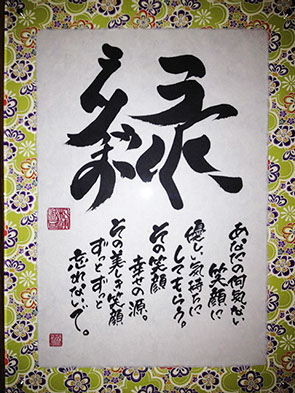 縁
あなたの何気ない
笑顔に
優しい気持ちに
してもらう。
その笑顔
幸せの源。
その美しき笑顔
ずっとずっと
忘れないで。